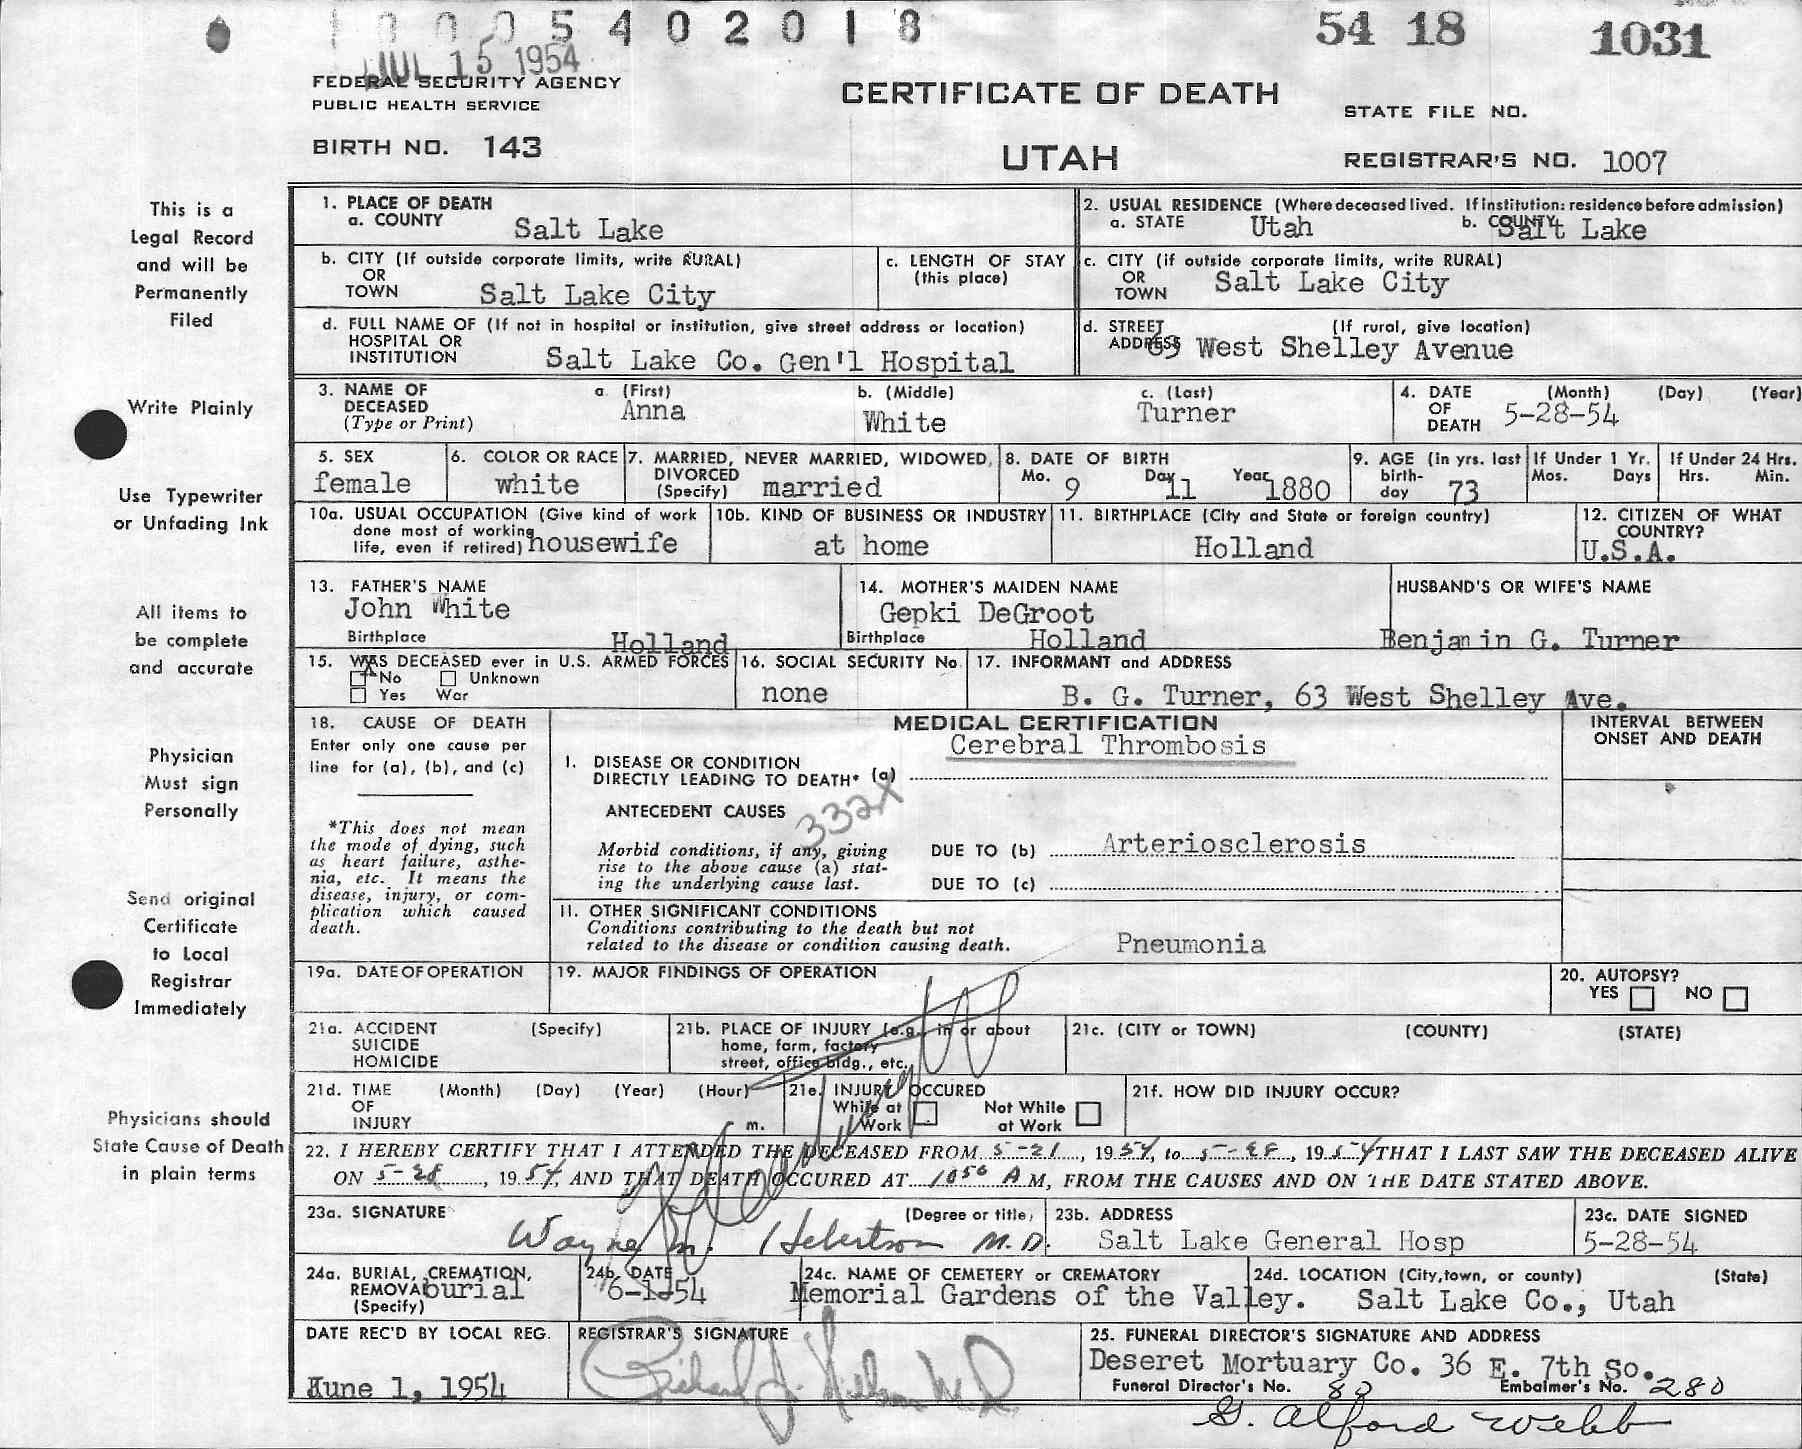 1 0 0 0 5 4 0 2 0 1 8
54 18
1031
JUL 15 1954
FEDERAL SECURITY AGENCY
PUBLIC HEALTH SERVICE
CERTIFICATE OF DEATH
STATE FILE NO.
BIRTH NO. 143
UTAH
REGISTRAR'S NO. 1007
This is a
Legal Record
and will be
Permanently
Filed
Write Plainly
Use Typewriter
or Unfading Ink
All items to
be complete
and accurate
Physician
Must sign
Personally
Send original
Certificate
to Local
Registrar
Immediately
Physicians should
State Cause of Death
in plain terms
1. PLACE OF DEATH
a. COUNTY Salt Lake
2. USUAL RESIDENCE (Where deceased lived. If institution: residence before admission)
a. STATE Utah b. COUNTY Salt Lake
b. CITY (If outside corporate limits, write RURAL)
OR
TOWN Salt Lake City
c. LENGTH OF STAY
(this place)
c. CITY (if outside corporate limits, write RURAL)
OR
TOWN Salt Lake City
d. FULL NAME OF (If not in hospital or institution, give street address or location)
HOSPITAL OR
INSTITUTION Salt Lake Co. Gen'l Hospital
d. STREET (If rural, give location)
ADDRESS 63 West Shelley Avenue
3. NAME OF
DECEASED
(Type or Print)
a. (First) Anna
b. (Middle) White
c. (Last) Turner
4. DATE (Month) (Day) (Year)
OF
DEATH 5-28-54
5. SEX
female
6. COLOR OR RACE
white
7. MARRIED, NEVER MARRIED, WIDOWED,
DIVORCED
(Specify) married
8. DATE OF BIRTH
Mo. 9 Day 11 Year 1880
9. AGE (in yrs. last
birth-
day 73
If Under 1 Yr.
Mos. Days
If Under 24 Hrs.
Hrs. Min.
10a. USUAL OCCUPATION (Give kind of work
done most of working
life, even if retired) housewife
10b. KIND OF BUSINESS OR INDUSTRY
at home
11. BIRTHPLACE (City and State or foreign country)
Holland
12. CITIZEN OF WHAT
COUNTRY?
U.S.A.
13. FATHER'S NAME
John White
Birthplace Holland
14. MOTHER'S MAIDEN NAME
Gepki DeGroot
Birthplace Holland
HUSBAND'S OR WIFE'S NAME
Benjamin G. Turner
15. WAS DECEASED ever in U.S. ARMED FORCES
X No Unknown
Yes War
16. SOCIAL SECURITY No.
none
17. INFORMANT and ADDRESS
B. G. Turner, 63 West Shelley Ave.
18. CAUSE OF DEATH
Enter only one cause per
line for (a), (b), and (c)
*This does not mean
the mode of dying, such
as heart failure, asthe-
nia, etc. It means the
disease, injury, or com-
plication which caused
death.
MEDICAL CERTIFICATION
Cerebral Thrombosis
I. DISEASE OR CONDITION
DIRECTLY LEADING TO DEATH* (a)
ANTECEDENT CAUSES
332X
Morbid conditions, if any, giving
rise to the above cause (a) stat-
ing the underlying cause last.
DUE TO (b) Arteriosclerosis
DUE TO (c)
INTERVAL BETWEEN
ONSET AND DEATH
II. OTHER SIGNIFICANT CONDITIONS
Conditions contributing to the death but not
related to the disease or condition causing death. Pneumonia
19a. DATE OF OPERATION
19. MAJOR FINDINGS OF OPERATION
20. AUTOPSY?
YES NO
21a. ACCIDENT (Specify)
SUICIDE
HOMICIDE
21b. PLACE OF INJURY (e.g., in or about
home, farm, factory
street, office bldg., etc.
21c. (CITY or TOWN) (COUNTY) (STATE)
21d. TIME (Month) (Day) (Year) (Hour)
OF
INJURY m.
21e. INJURY OCCURED
While at
Work
Not While
at Work
21f. HOW DID INJURY OCCUR?
22. I HEREBY CERTIFY THAT I ATTENDED THE DECEASED FROM 5-21, 1954, to 5-28, 1954 THAT I LAST SAW THE DECEASED ALIVE
ON 5-28, 1954, AND THAT DEATH OCCURED AT 1050 A M, FROM THE CAUSES AND ON THE DATE STATED ABOVE.
23a. SIGNATURE (Degree or title)
Wayne M. Hebertson M.D.
23b. ADDRESS
Salt Lake General Hosp
23c. DATE SIGNED
5-28-54
24a. BURIAL, CREMATION,
REMOVAL burial
(Specify)
24b. DATE
6-1-54
24c. NAME OF CEMETERY or CREMATORY
Memorial Gardens of the Valley.
24d. LOCATION (City, town, or county) (State)
Salt Lake Co., Utah
DATE REC'D BY LOCAL REG.
June 1, 1954
REGISTRAR'S SIGNATURE
25. FUNERAL DIRECTOR'S SIGNATURE AND ADDRESS
Deseret Mortuary Co. 36 E. 7th So.
Funeral Director's No. 80 Embalmer's No. 280
G. Alford Webb